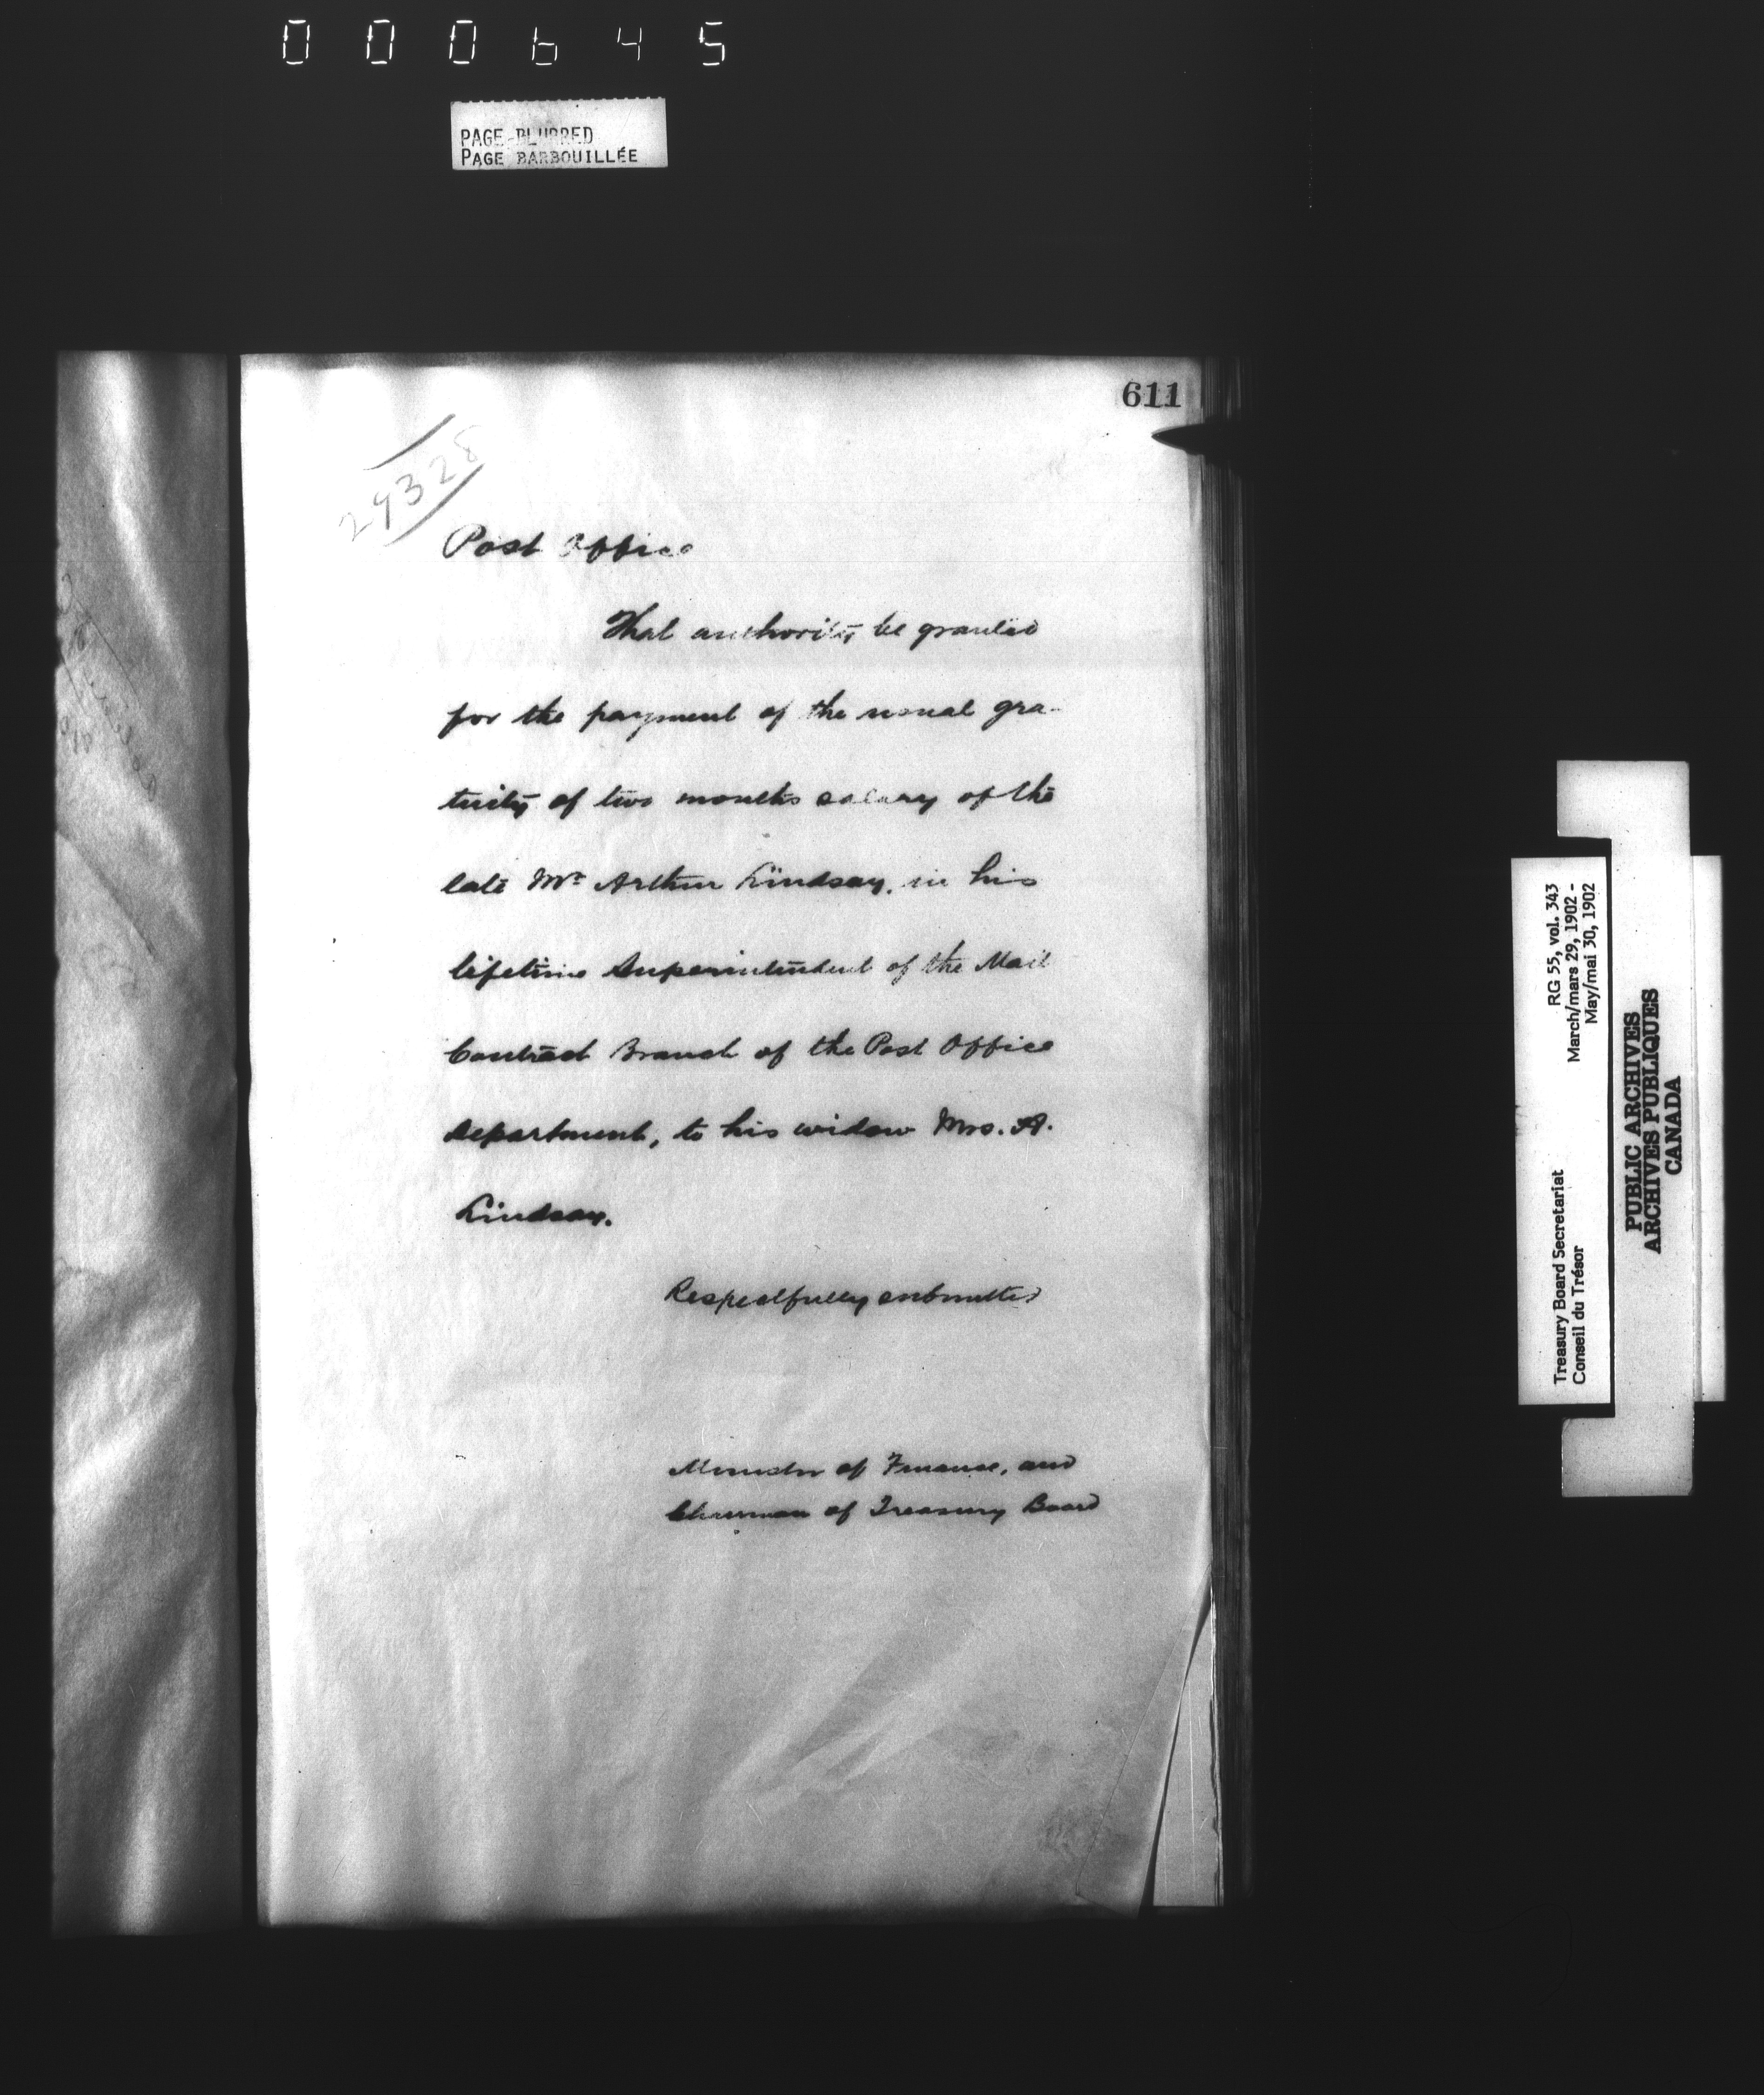 000645
PAGE BLURRED
PAGE BARBOUILLÉE
611
29328
Post Office
That authority be granted
for the payment of the usual gra-
tuity of two months salary of the
late Mr Arthur Lindsay, in his
lifetime Superintendent of the Mail
Contract Branch of the Post Office
Department, to his widow Mrs. A.
Lindsay.
Respectfully submitted
Minister of Finance, and
Chairman of Treasury Board
Treasury Board Secretariat RG 55, vol. 343
Conseil du Trésor March/mars 29, 1902 -
May/mai 30, 1902
PUBLIC ARCHIVES
ARCHIVES PUBLIQUES
CANADA